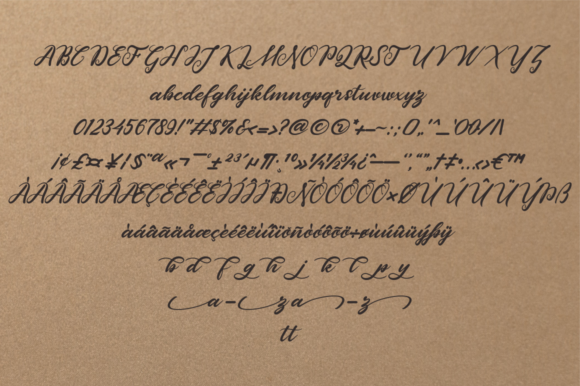 ABCDEFGHIJKLMNOPQRSTUVWXYZ
abcdefghijklmnopqrstuvwxyz
0123456789!"#$%&<=>?@©®*+—~:;
¡¢£¤¥
ÀÁÂÃÄÅÆÇÈÉÊËÌÍÎÏÐÑÒÓÔÕÖ×ØÙÚÛÜÝÞß
àáâãäåæçèéêëìíîïðñòóôõö÷øùúûüýþÿ
b d f g h j k l p y
a - za - z
tt